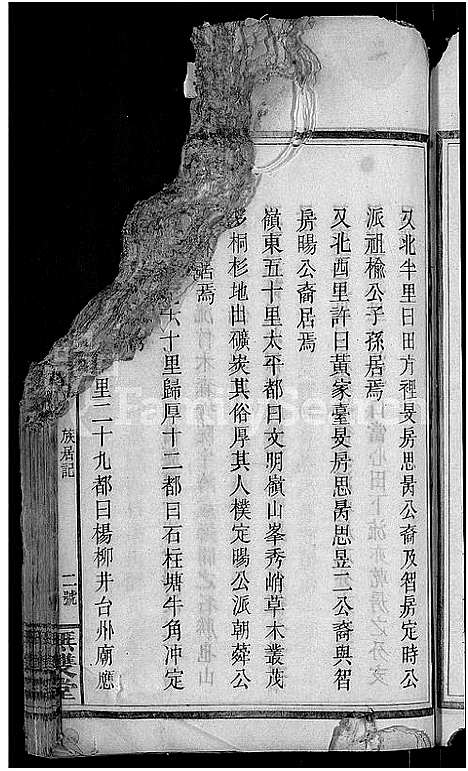 又北半里曰田方裡旻房思勗公裔及智房定時公
派祖檢公子孫居焉
又北酉里許曰黃家臺旻房思勗思昱二公裔與智
房暘公裔居焉
嶺東五十里太平都曰文明嶺山峯秀峭草木叢茂
多桐杉地出礦炭其俗厚其人樸定暘公派朝蕣公
居焉
六十里歸厚十二都曰石枉塘牛角冲定
里二十九都曰楊柳井台州廟應
族居記
二號
無雙堂
FamilySearch